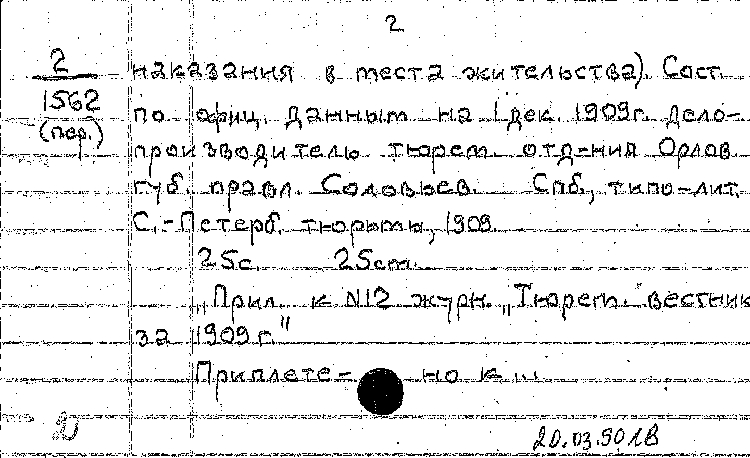 2
2
1562
(пер.)
наказания в места жительства). Сост.
по офиц. данным на 1 дек. 1909г. дело-
производителю тюрем. отд-ния Орлов.
губ. правл. Соловьев. Спб., типо-лит.
С.-Петерб. тюрьмы, 1909.
25с. 25cm.
„Прил. к №12 журн. „Тюрем. вестник
за 1909 г."
Приплете- но к ...
20.03.90